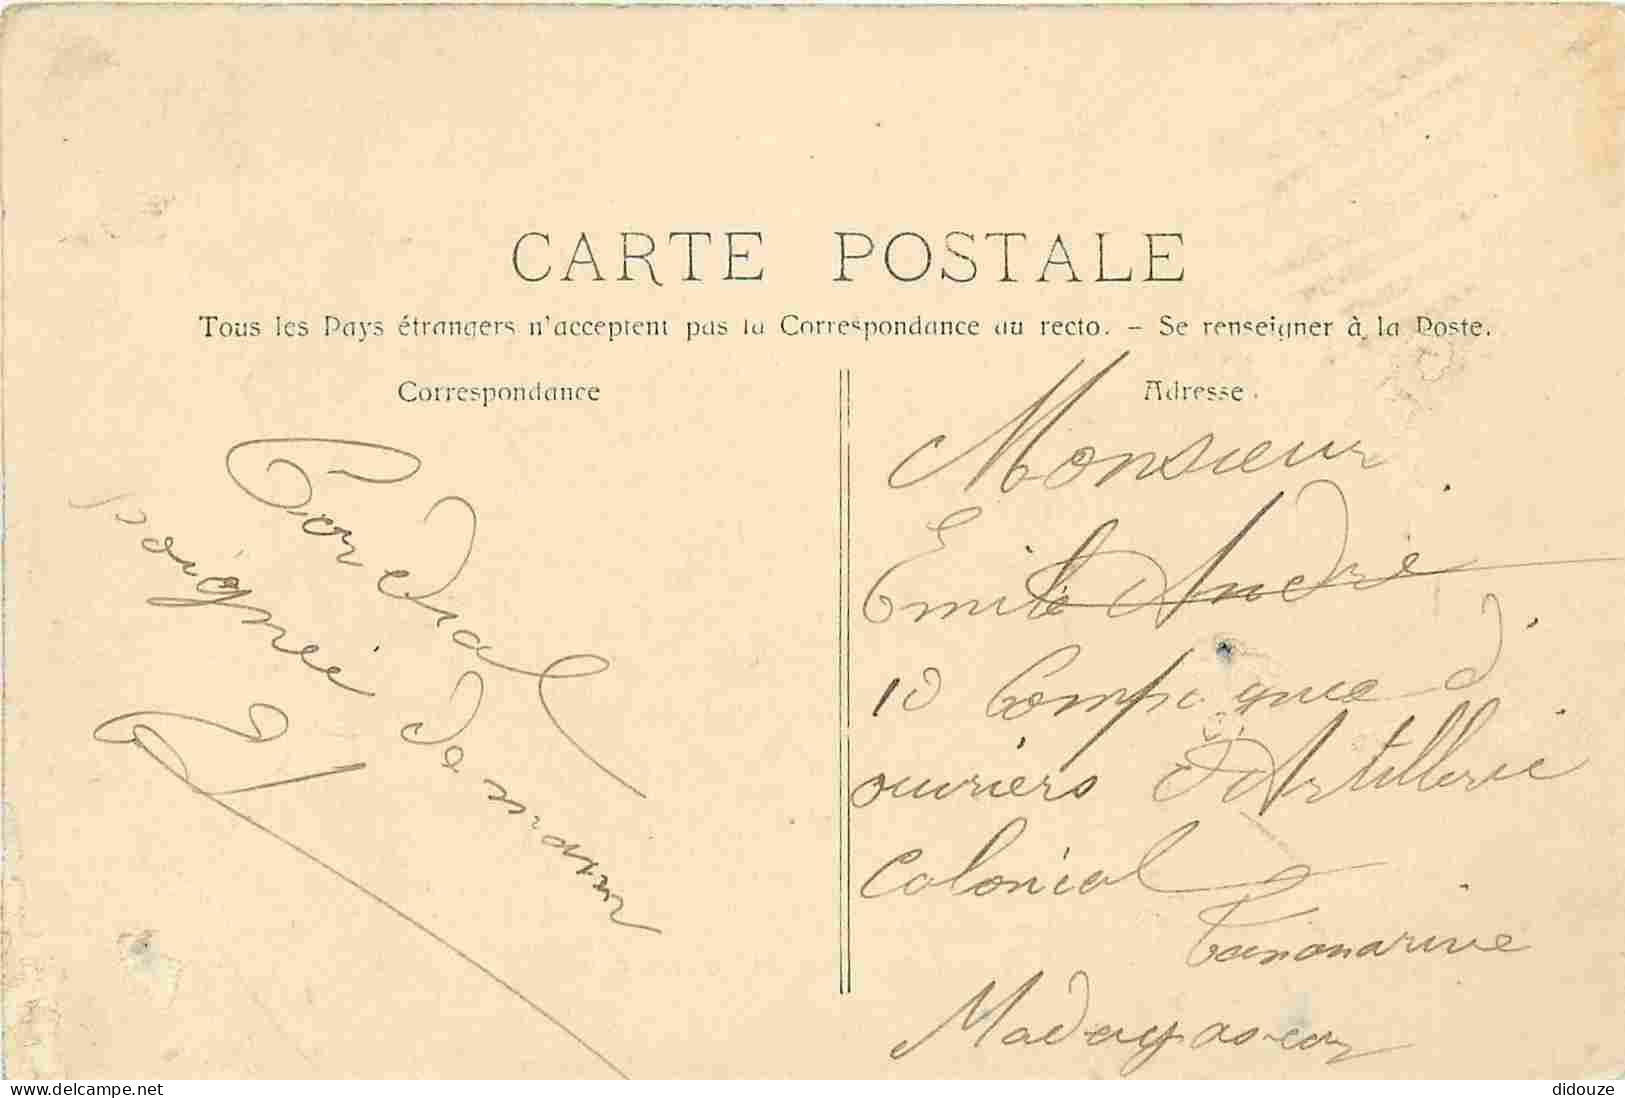 CARTE POSTALE
Tous les Pays étrangers n'acceptent pas la Correspondance au recto. - Se renseigner à la Poste.
Correspondance
Cordial
poignée de main
Adresse.
Monsieur
Emile André
10 Compagnie d
ouvriers d'Artillerie
Colonial
Tananarive
Madagascar
didouze